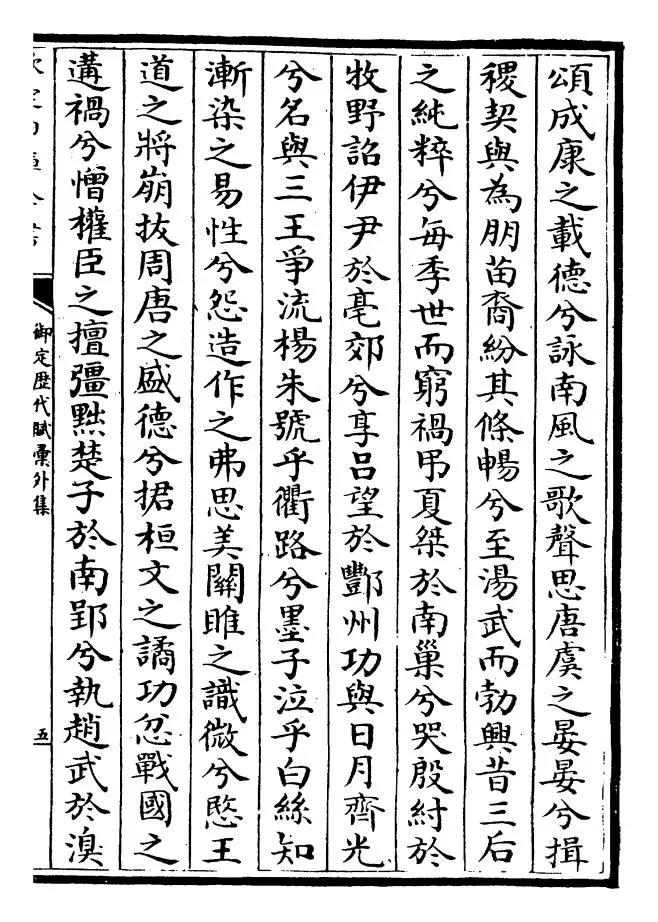 頌成康之載德兮詠南風之歌聲思唐虞之晏晏兮揖
稷契與為朋苗裔紛其條暢兮至湯武而勃興昔三后
之純粹兮每季世而窮禍弔夏桀於南巢兮哭殷紂於
牧野詔伊尹於亳郊兮享呂望於酆州功與日月齊光
兮名與三王爭流楊朱號乎衢路兮墨子泣乎白絲知
漸染之易性兮怨造作之弗思美關雎之識微兮愍王
道之將崩拔周唐之盛德兮捃桓文之譎功忿戰國之
遘禍兮憎權臣之擅彊黜楚子於南郢兮執趙武於溴
御定歴代賦彙外集
五